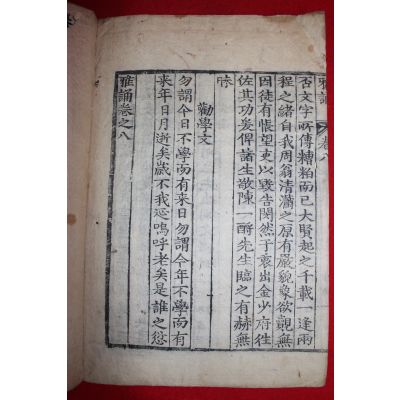 雅誦 卷八
否文字所傳糟粕而已大賢起之千載一逢兩
程之緒自我周翁清瀟之原有嚴貌象欲覿無
因徒有悵望吏以毀告閔然于衷出金少府徃
佐其功爰俾諸生敢陳一酹先生臨之有赫無
昧
勸學文
勿謂今日不學而有来日勿謂今年不學而有
来年日月逝矣歲不我延嗚呼老矣是誰之愆
雅誦卷之八